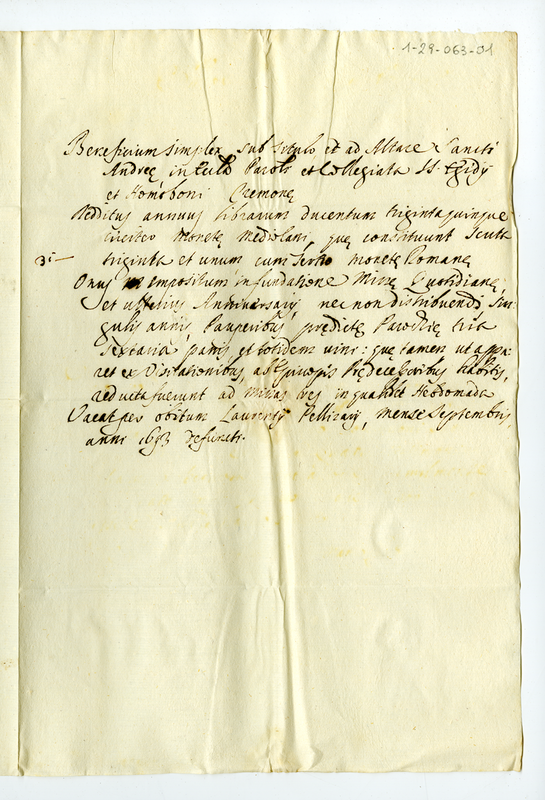 1-29-063-01
Beneficium simplex sub titulo et ad Altare Sancti
Andreę in Eccla Paroli et Collegiata SS. Egidij
et Homoboni Cremonę
Redditus annuus librarum ducentum triginta quinque
circiter monetę Mediolani, quę constituunt scuta
31 — triginta et unum cum tertio monetę Romanę
Onus impositum in fundatione Missę Quotidianę,
et Anniversarij, nec non distribuendi sin
gulis annis Pauperibus prędictę Parochię tria
sextaria panis et totidem vini: quę tamen ut appa
ret ex Visitationibus, ab Episcopis Prędecessoribus habitis,
reducta fuerunt ad Missas tres in qualibet Hebdomada
Vacat per obitum Laurentij Pellizarij, mense Septembris,
anni 1693 defuncti.